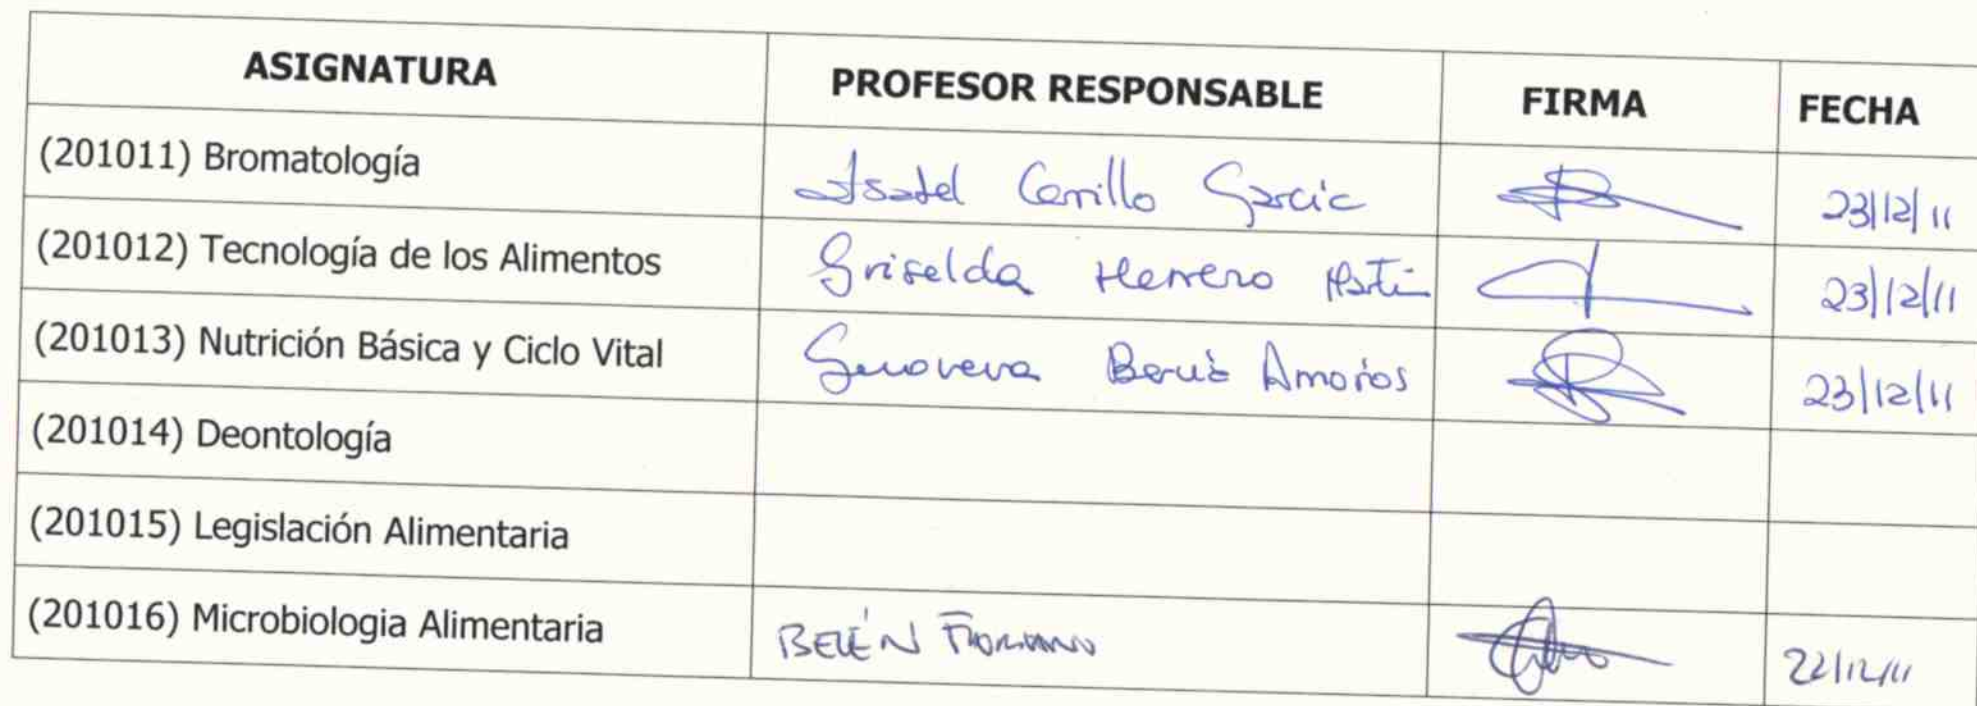 ASIGNATURA PROFESOR RESPONSABLE FIRMA FECHA
(201011) Bromatología Isabel Carrillo García 23/12/11
(201012) Tecnología de los Alimentos Griselda Herrero 23/12/11
(201013) Nutrición Básica y Ciclo Vital Genoveva Berná Amorós 23/12/11
(201014) Deontología
(201015) Legislación Alimentaria
(201016) Microbiologia Alimentaria BELÉN FLORIANO 22/12/11